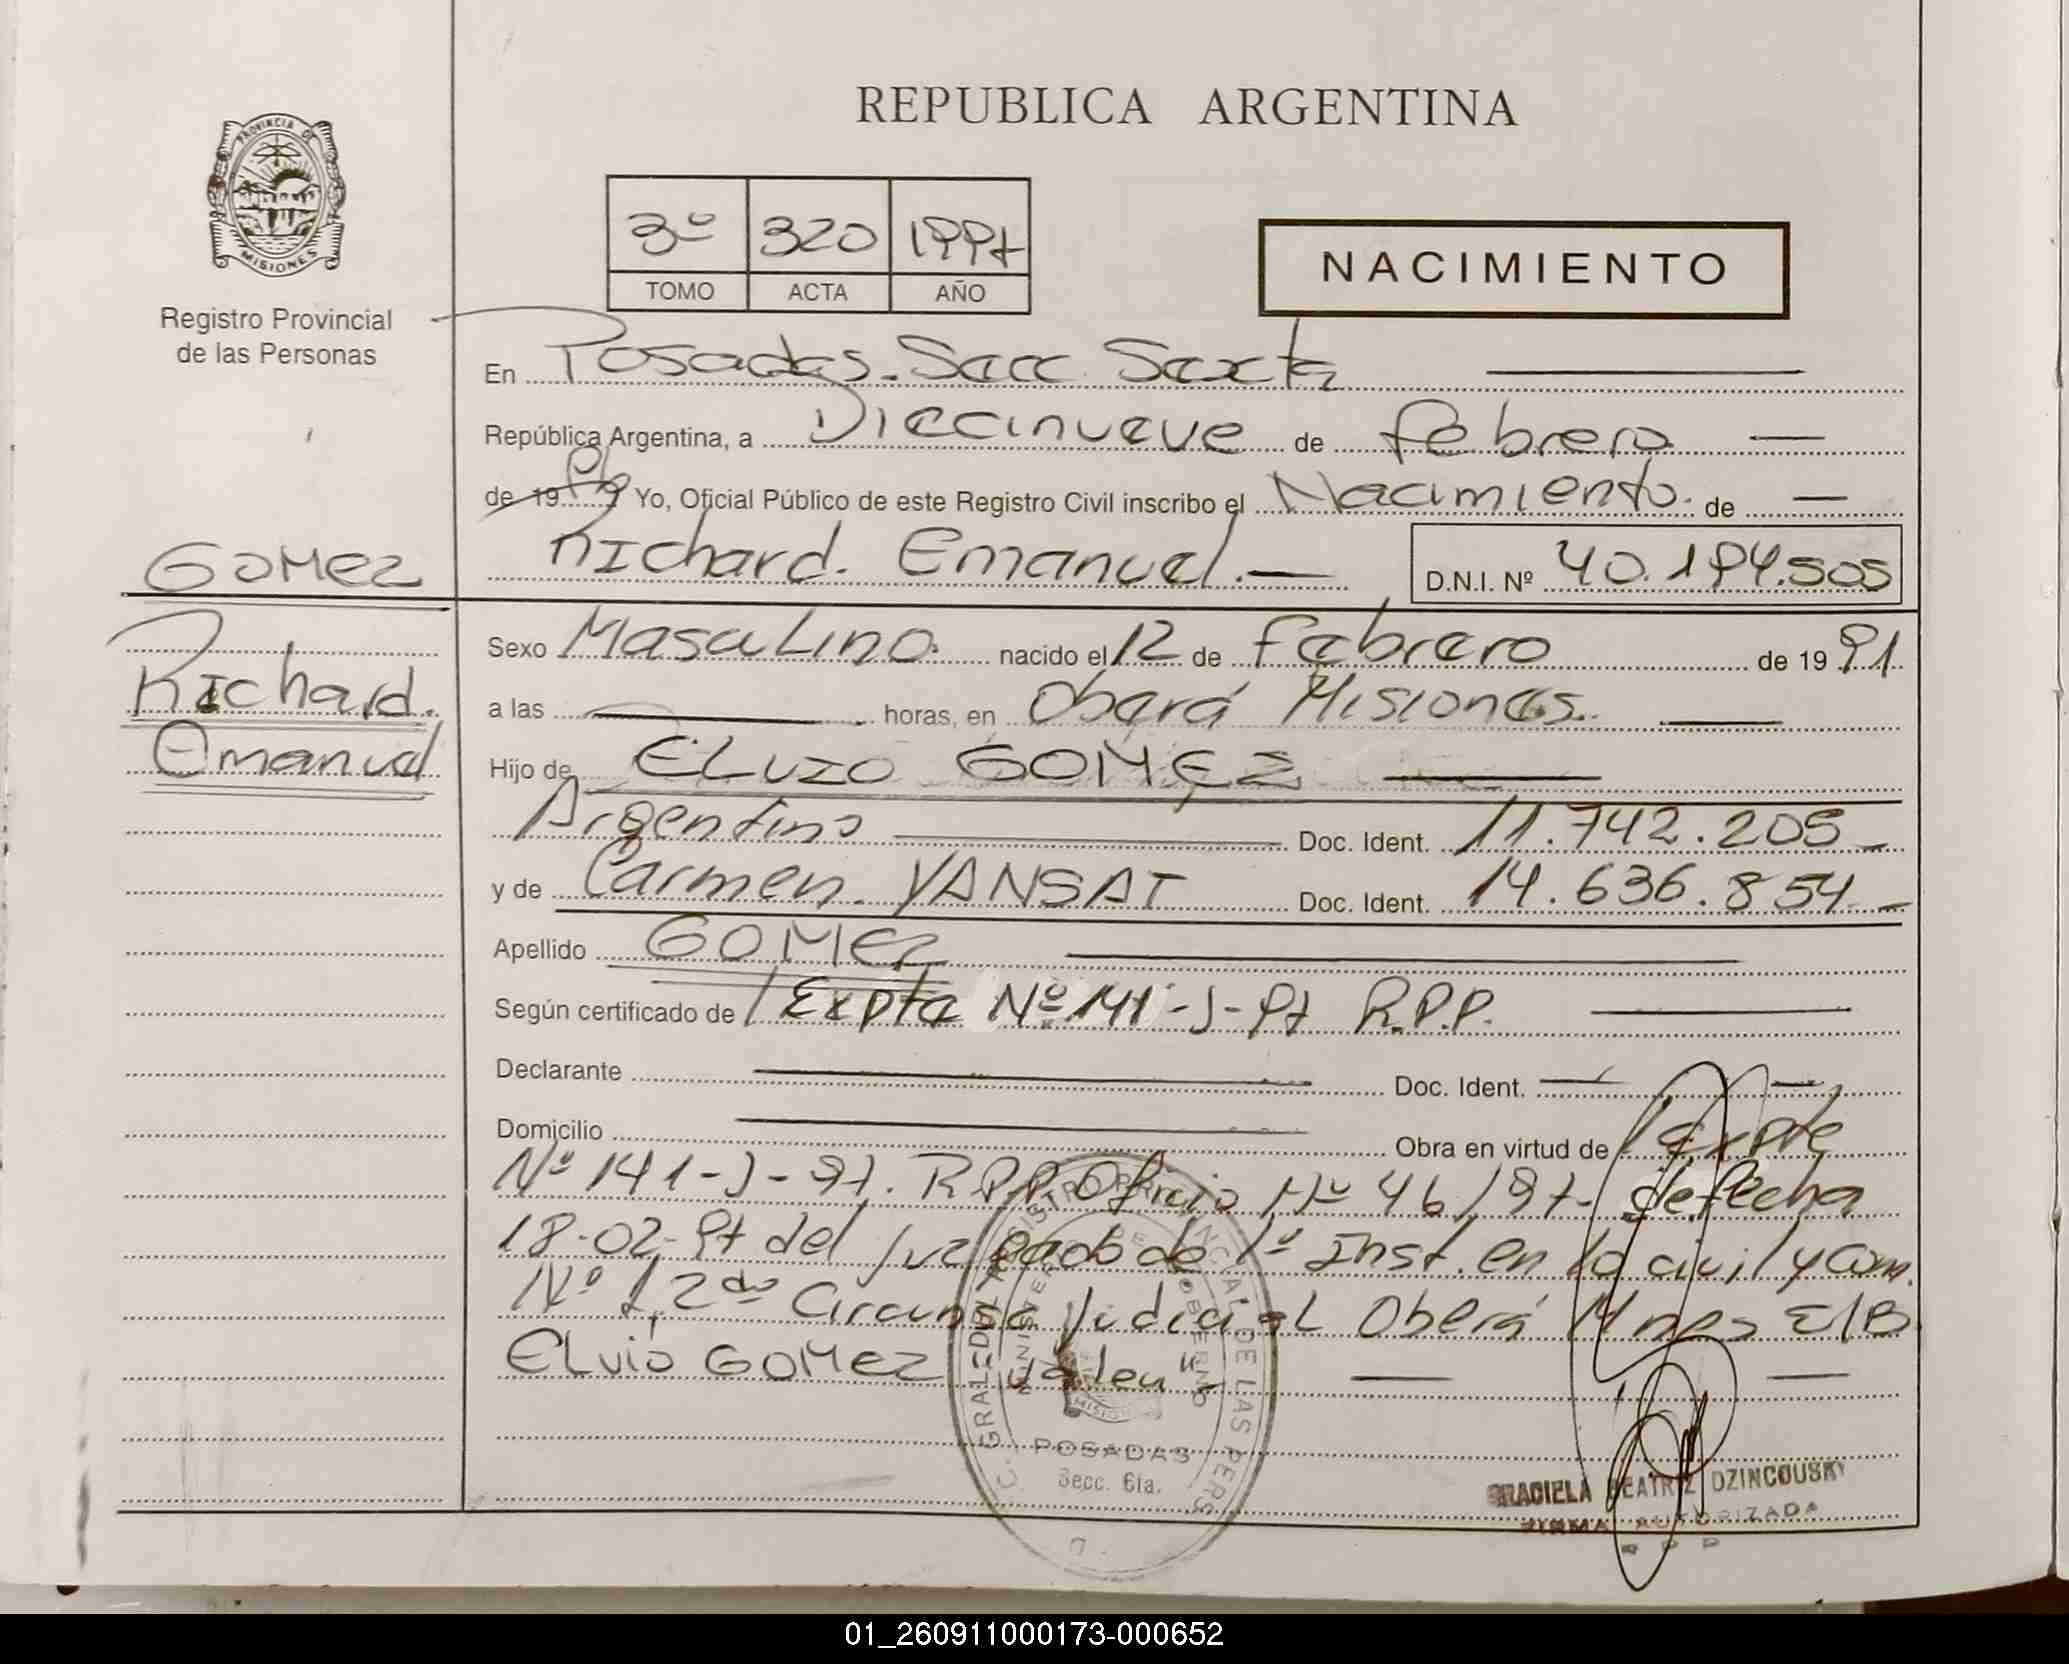 REPUBLICA ARGENTINA
PROVINCIA DE MISIONES
Registro Provincial
de las Personas
3º 320 1997
TOMO ACTA AÑO
NACIMIENTO
En Posadas. Secc. Sexta
República Argentina, a Diecinueve de febrero
de 19 Yo, Oficial Público de este Registro Civil inscribo el Nacimiento. de
Richard. Emanuel.
D.N.I. Nº 40.194.505
GOMEZ
Richard.
Emanuel
Sexo Masculino. nacido el 12 de febrero de 1991
a las horas, en Oberá Misiones.
Hijo de ELVIO GOMEZ
Argentino Doc. Ident. 11.742.205
y de Carmen. YANSAT Doc. Ident. 14.636.854
Apellido GOMEZ
Según certificado de Expte Nº 141-J-97 R.P.P.
Declarante Doc. Ident.
Domicilio Obra en virtud de Expte
Nº 141-J-97. R.P.P. Oficio Nº 46/97- de fecha
18-02-97 del Juzgado de 1º Inst. en lo civil y Com.
Nº 1, 2da Circunsc. Judicial Oberá Mnes E/B
ELvio GOMEZ Valen
REGISTRO PROVINCIAL DE LAS PERS
POSADAS
Secc. 6ta.
GRACIELA BEATRIZ DZINCOUSKY
FIRMA AUTORIZADA
01_260911000173-000652